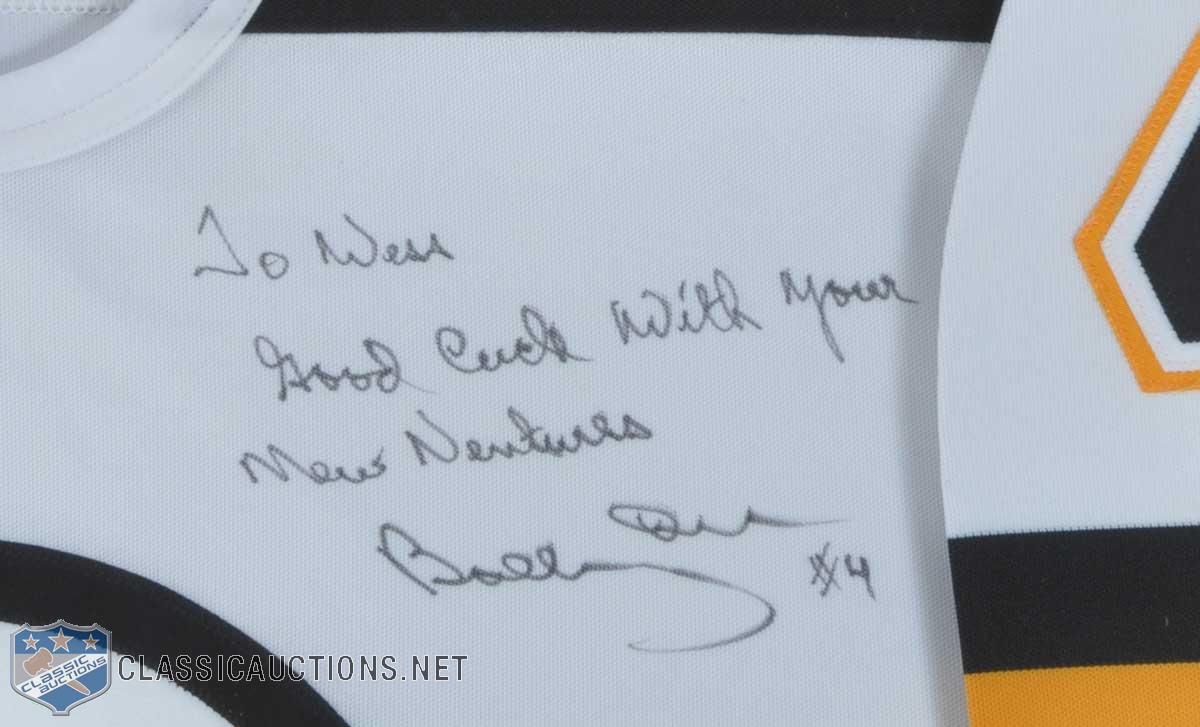 To Wess
Good Luck With Your
New Ventures
Bobby Orr
#4
CLASSIC
AUCTIONS
CLASSICAUCTIONS.NET